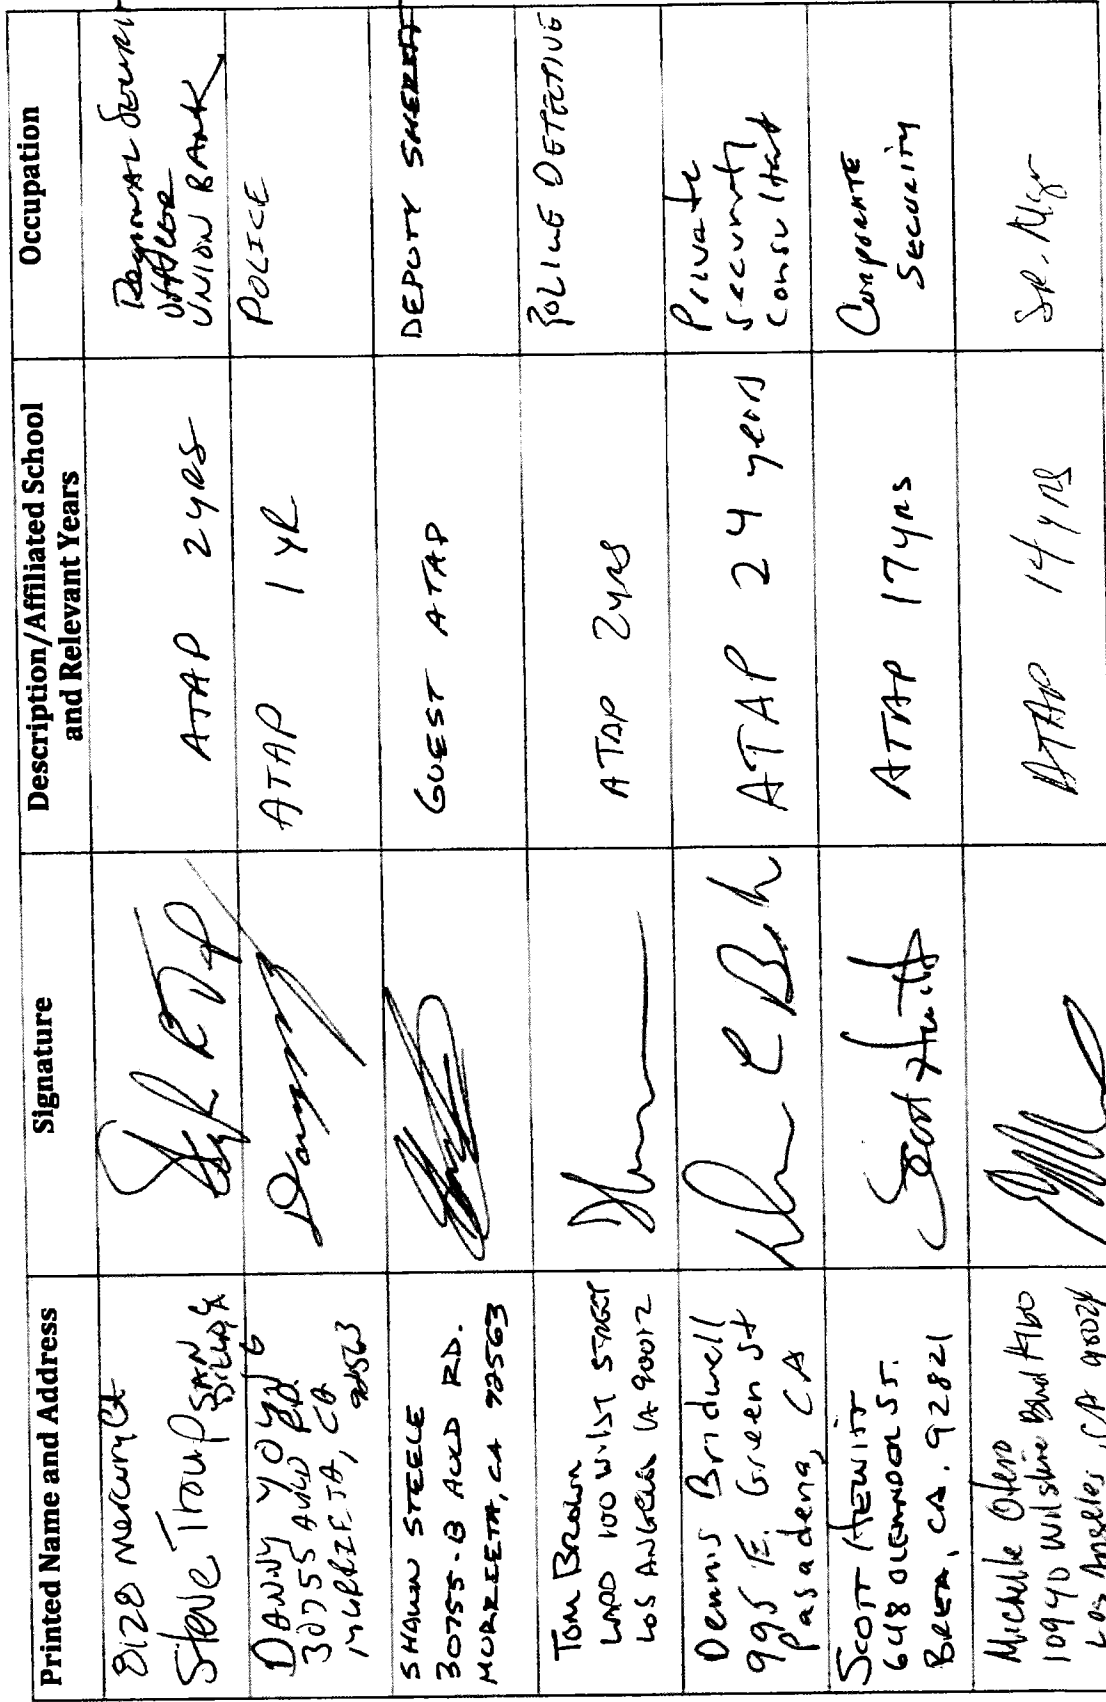 Printed Name and Address
Signature
Description/Affiliated School
and Relevant Years
Occupation
8128 Mercury Ct
Steve Troup SAN
DIEGO, CA
ATAP 2 YRS
Regional Securi
UNION BANK
DANNY YOUNG
30755 AULD RD.
MURRIETA, CA
92563
Danny
ATAP 1 YR
POLICE
SHAWN STEELE
30755-B AULD RD.
MURRIETA, CA 92563
GUEST ATAP
DEPUTY SHERIFF
TOM BROWN
LAPD 100 W. 1ST STREET
LOS ANGELES CA 90012
ATAP 2yrs
POLICE DETECTIVE
Dennis Bridwell
995 E. Green St
Pasadena, CA
ATAP 24 years
Private
Security
Consultant
SCOTT HEWITT
648 OLEANDER ST.
BREA, CA. 92821
Scott Hewitt
ATAP 17yrs
Corporate
Security
Michelle Otero
10940 Wilshire Blvd
Los Angeles, CA 90024
ATAP 14 yrs
SR. Mgr